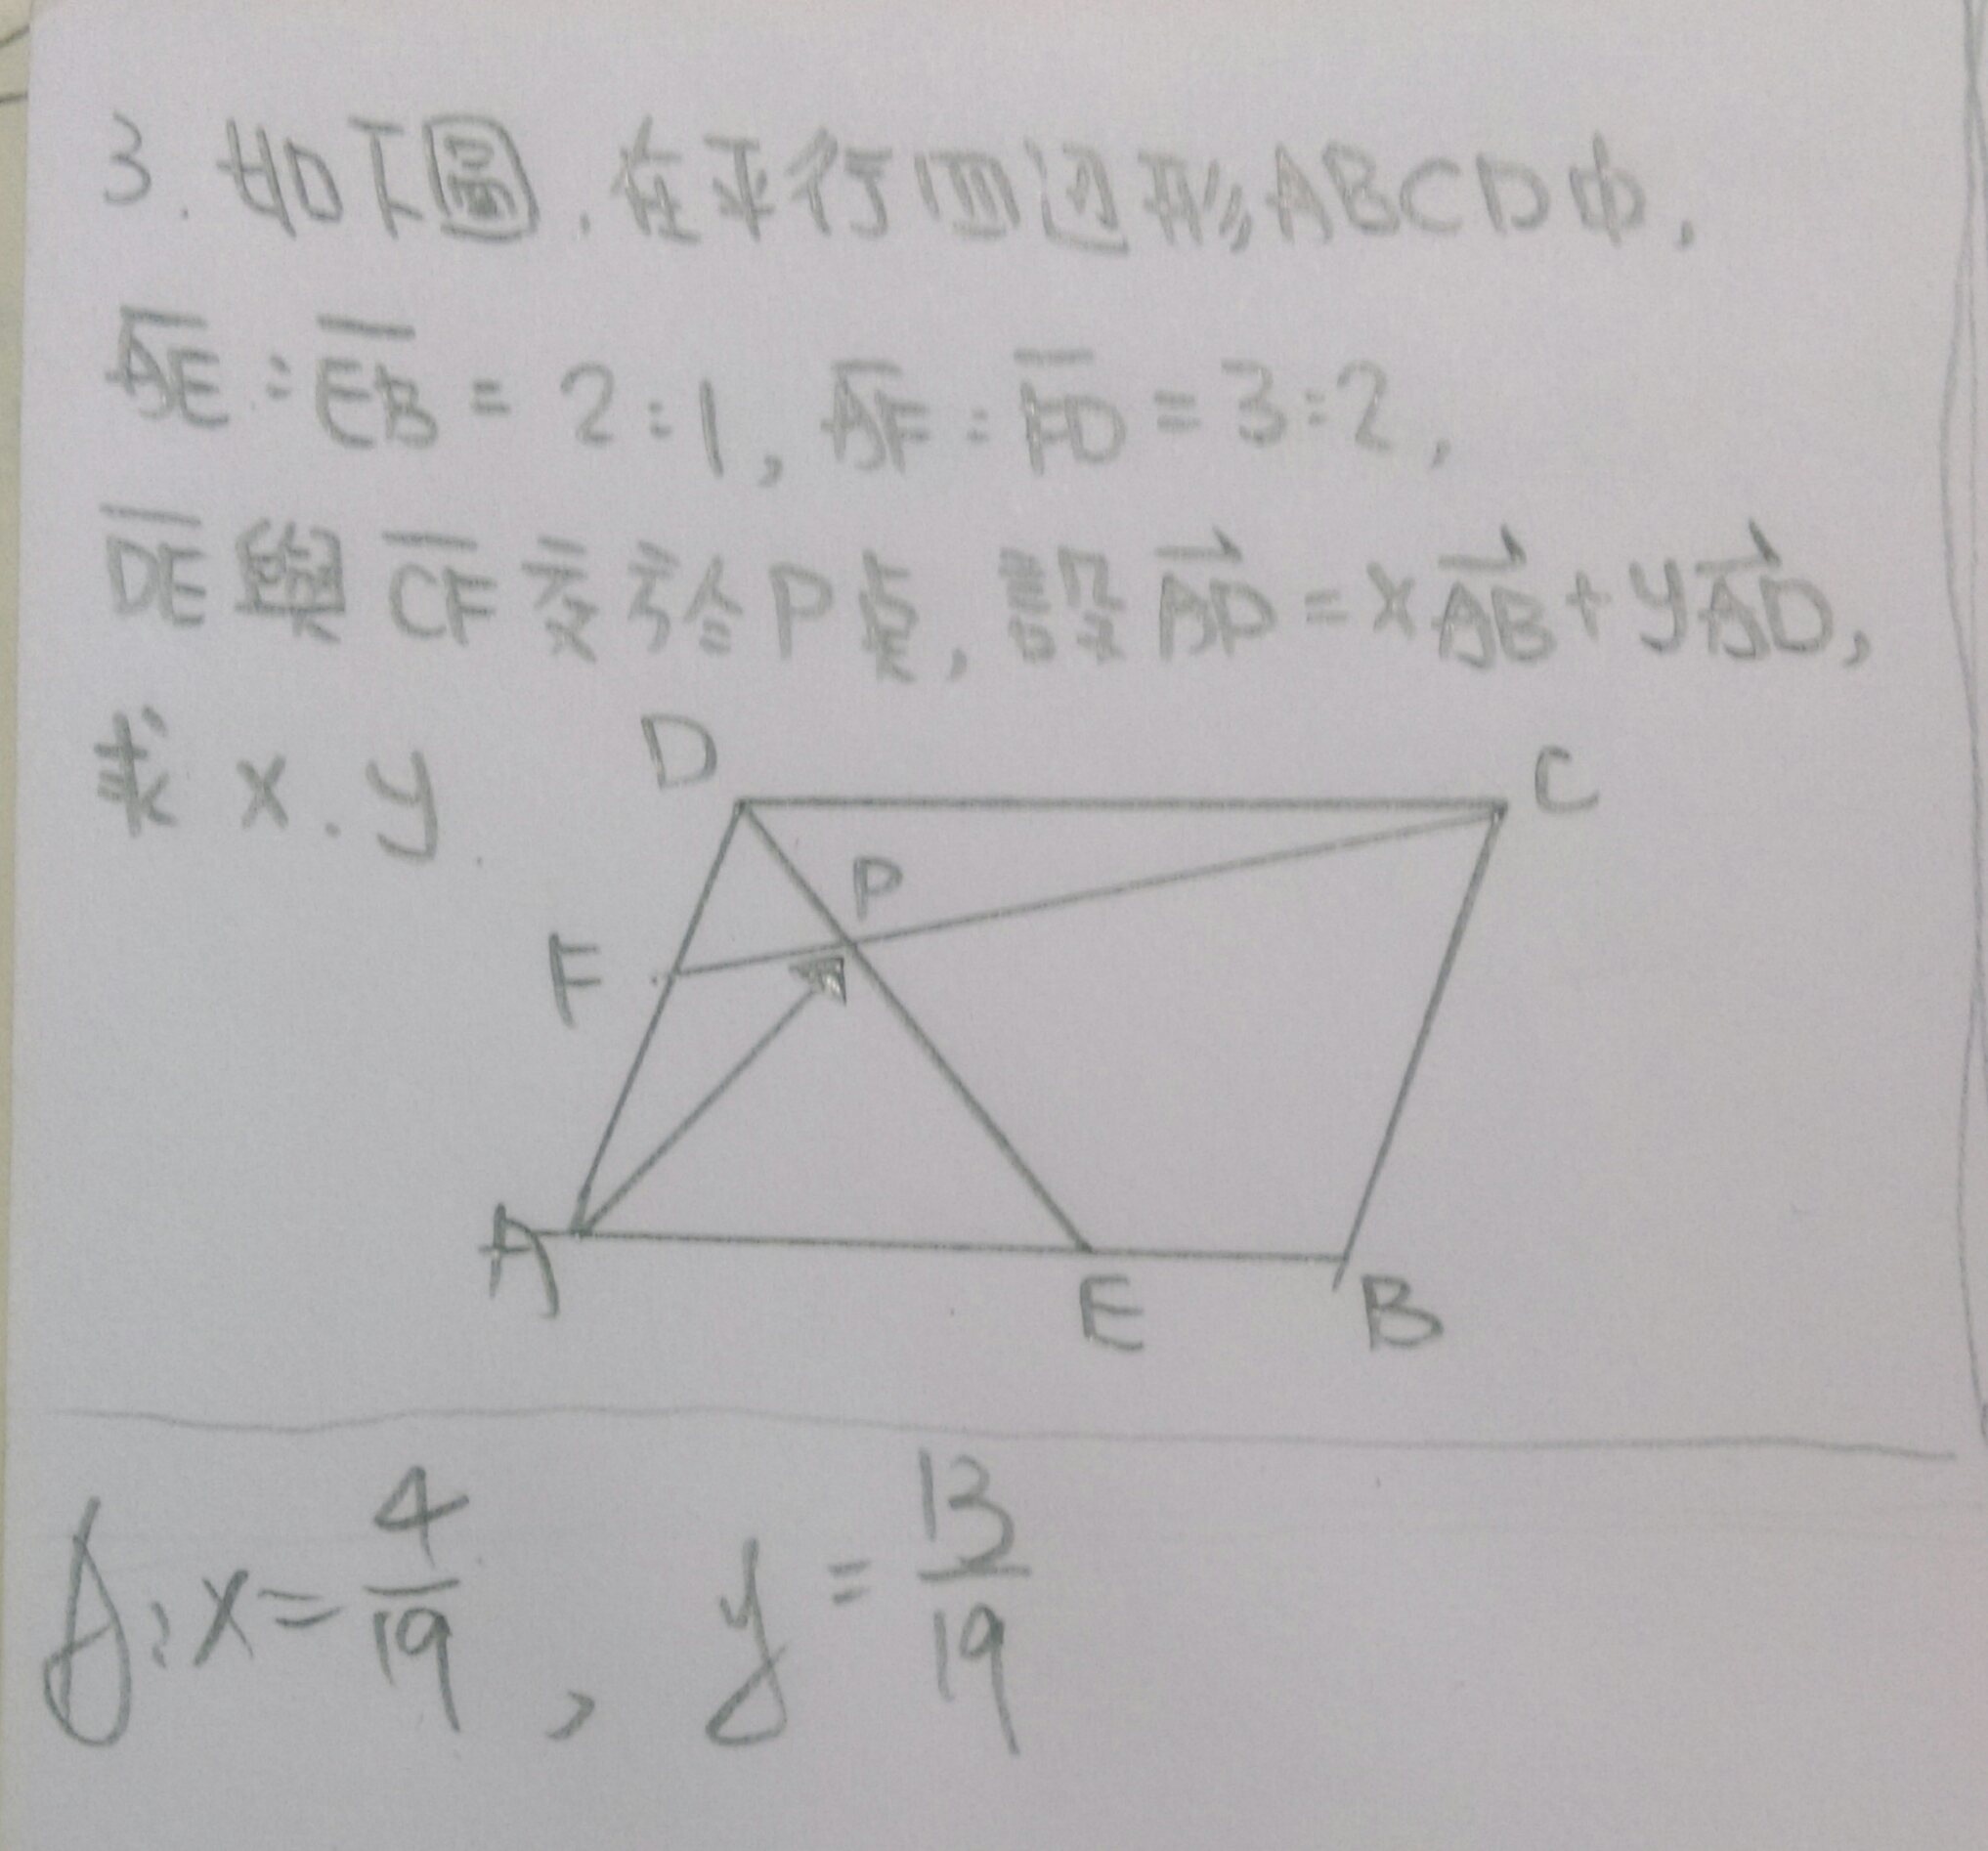 3. 如下圖,在平行四边形ABCD中,
AE:EB=2:1, AF:FD=3:2,
DE與CF交於P點,設AP=xAB+yAD,
求x.y.
D
C
P
F
A
E
B
A:x=4/19, y=13/19